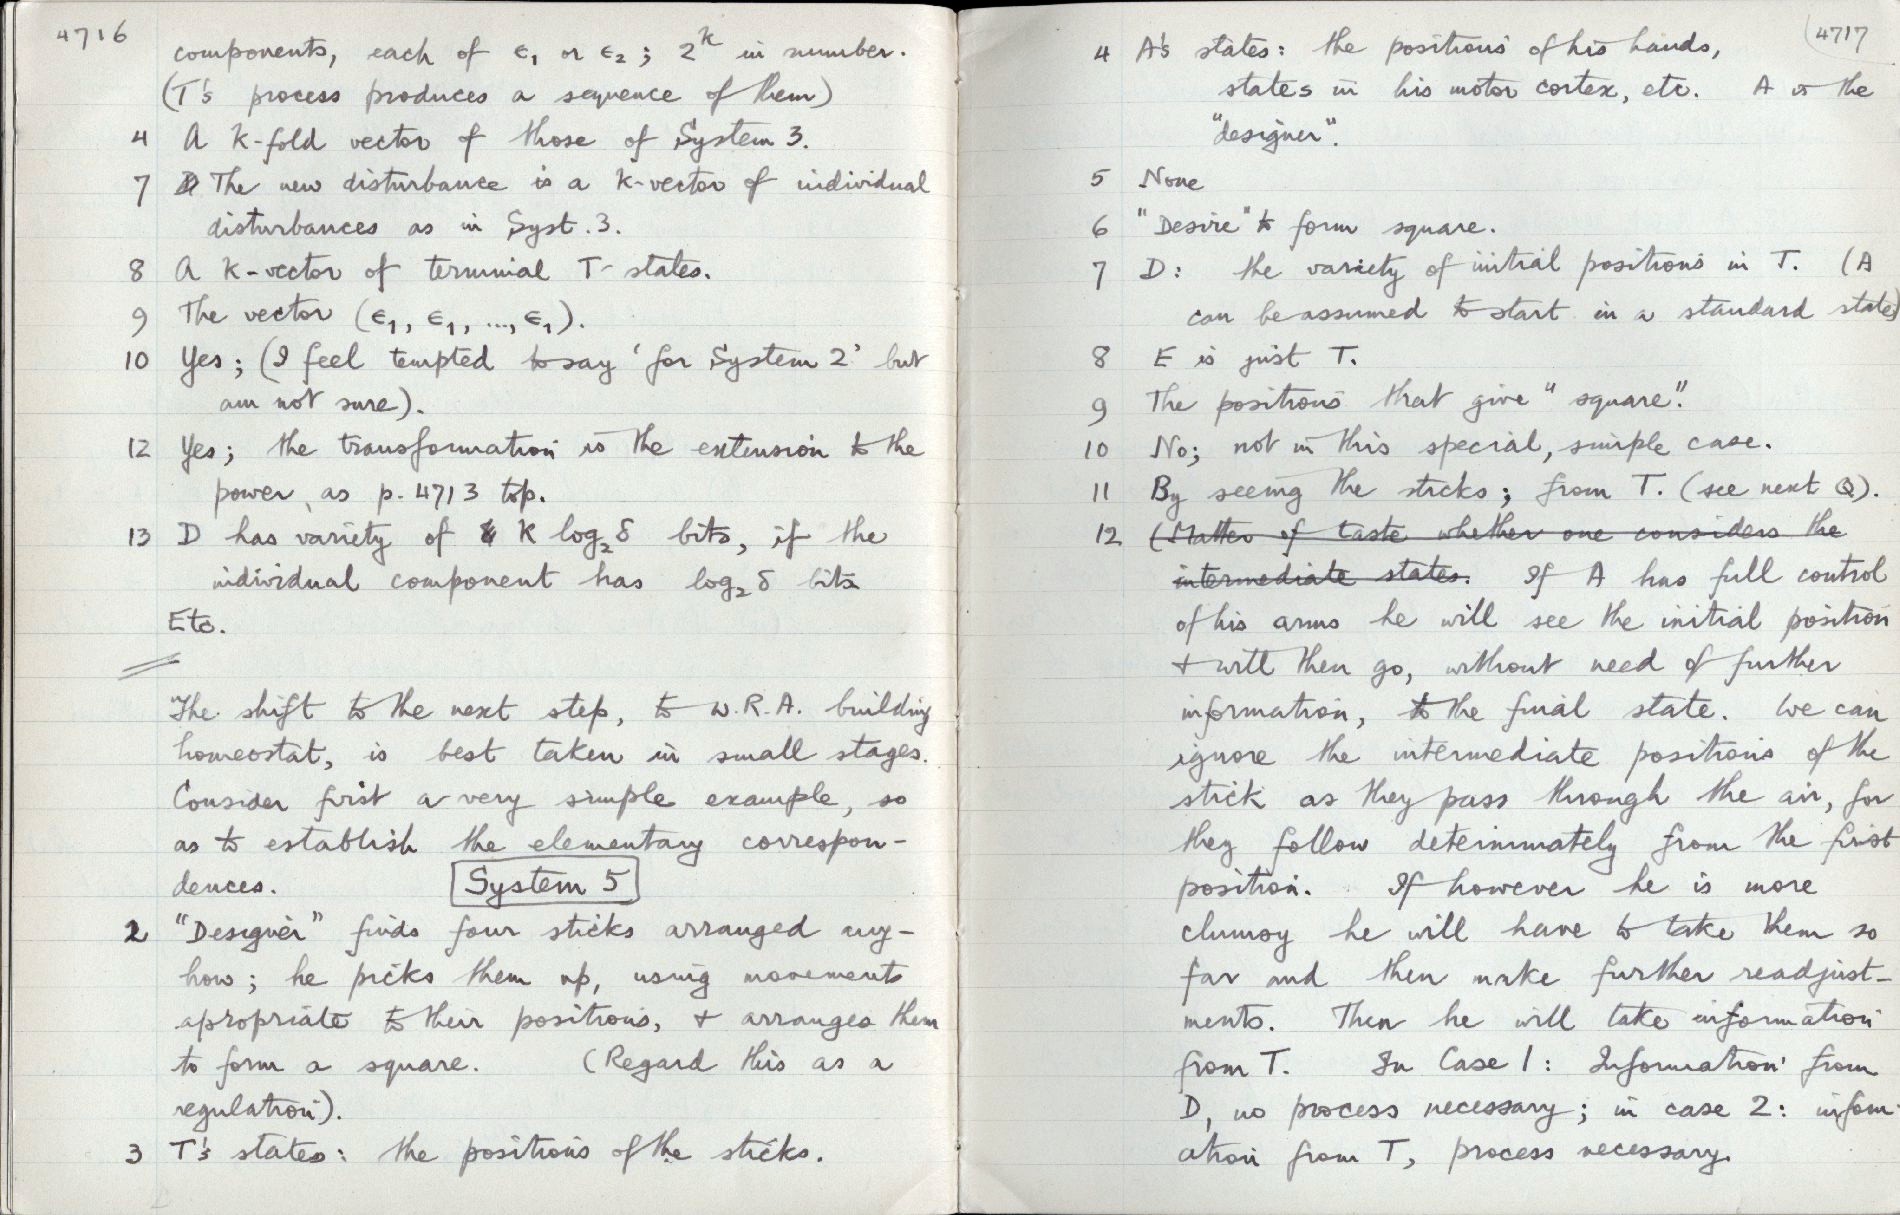 4716
components, each of ϵ₁ or ϵ₂; 2ᵏ in number.
(T's process produces a sequence of them)
4 A k-fold vector of those of System 3.
7 The new disturbance is a k-vector of individual
disturbances as in Syst. 3.
8 A k-vector of terminal T-states.
9 The vector (ϵ₁, ϵ₁, ..., ϵ₁).
10 Yes; (I feel tempted to say 'for System 2' but
am not sure).
12 Yes; the transformation is the extension to the
power, as p. 4713 top.
13 D has variety of k log₂ δ bits, if the
individual component has log₂ δ bits
Etc.
The shift to the next step, to W.R.A. building
homeostat, is best taken in small stages.
Consider first a very simple example, so
as to establish the elementary correspon-
dences. System 5
2 "Designer" finds four sticks arranged any-
how; he picks them up, using movements
apropriate to their positions, + arranges them
to form a square. (Regard this as a
regulation).
3 T's states: the positions of the sticks.
4717
4 A's states: the positions of his hands,
states in his motor cortex, etc. A is the
"designer".
5 None
6 "Desire" to form square.
7 D: the variety of initial positions in T. (A
can be assumed to start in a standard state)
8 E is just T.
9 The positions that give "square".
10 No; not in this special, simple case.
11 By seeing the sticks; from T. (see next Q).
12 (Matter of taste whether one considers the
intermediate states. If A has full control
of his arms he will see the initial position
+ will then go, without need of further
information, to the final state. We can
ignore the intermediate positions of the
stick as they pass through the air, for
they follow determinately from the first
position. If however he is more
clumsy he will have to take them so
far and then make further readjust-
ments. Then he will take information
from T. In Case 1: Information from
D, no process necessary; in case 2: inform-
ation from T, process necessary.